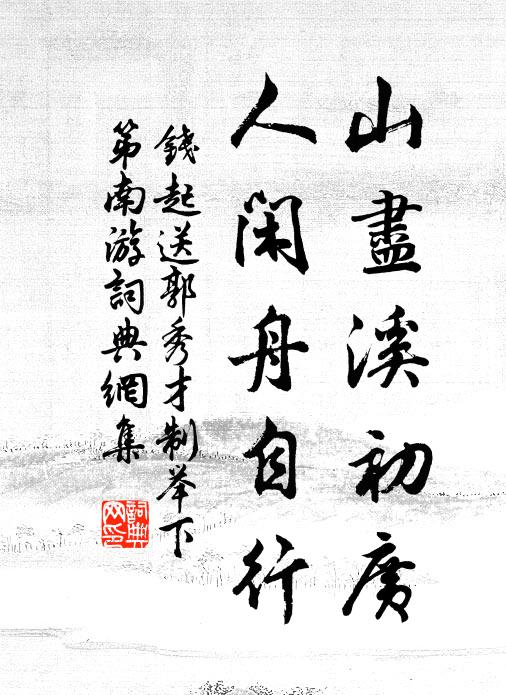 山盡溪初廣
人閑舟自行
錢起送郭秀才制举下
第南游詞典網集
詞典
网印